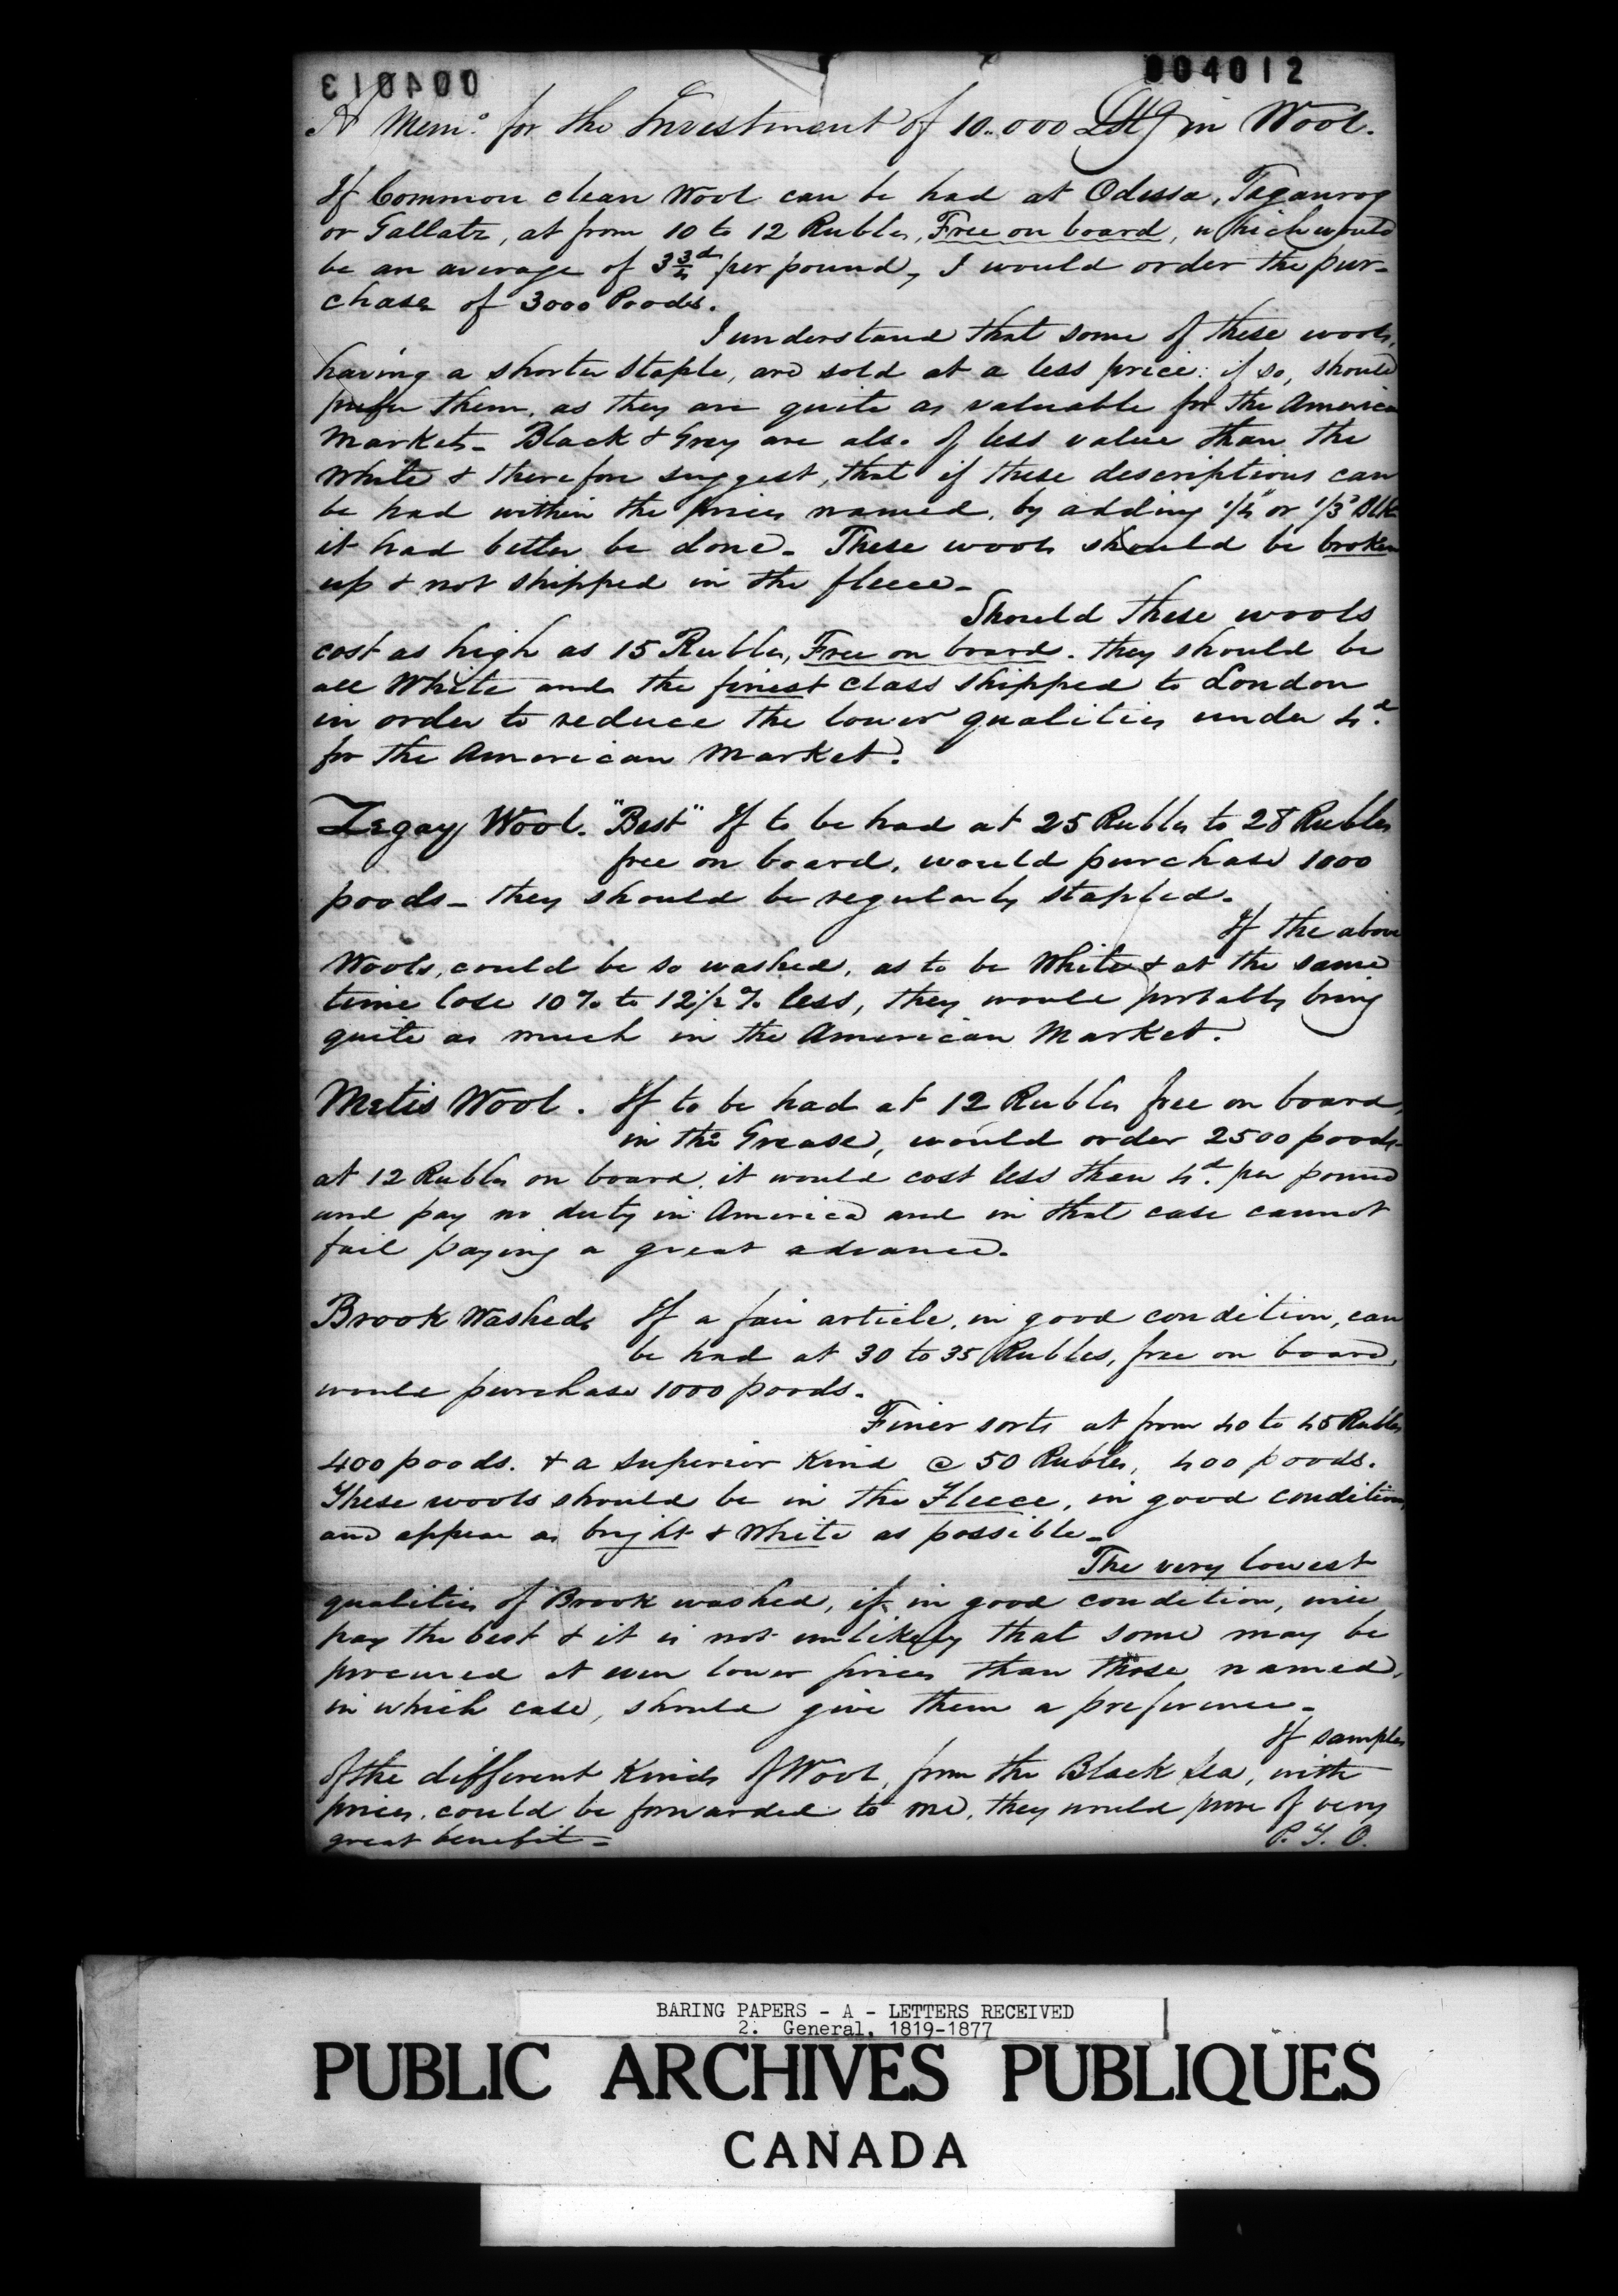 004013
004012
A Memo. for the Investment of 10.000 £Stg in Wool.
If Common clean Wool can be had at Odessa, Taganrog
or Gallatz, at from 10 to 12 Rubles, Free on board, which would
be an average of 3 3/4d per pound, I would order the pur-
chase of 3000 Poods.
I understand that some of these wools,
having a shorter staple, are sold at a less price: if so, should
prefer them, as they are quite as valuable for the American
Market - Black & Grey are also of less value than the
White & therefore suggest, that if these descriptions can
be had within the prices named, by adding 1/4 or 1/3d Blk
it had better be done - These wools should be broken
up & not shipped in the fleece -
Should these wools
cost as high as 15 Rubles, Free on board. they should be
all White and the finest class shipped to London
in order to reduce the lower qualities under 4d.
for the American Market.
Zegay Wool. "Best" If to be had at 25 Rubles to 28 Rubles
free on board, would purchase 1000
poods - they should be regularly stapled.
If the above
Wools, could be so washed, as to be White & at the same
time lose 10% to 12 1/2% less, they would probably bring
quite as much in the American Market.
Metis Wool. If to be had at 12 Rubles free on board,
in the Grease, would order 2500 poods -
at 12 Rubles on board, it would cost less than 4d. per pound
and pay no duty in America and in that case cannot
fail paying a great advance.
Brook Washed. If a fair article, in good condition, can
be had at 30 to 35 Rubles, free on board,
would purchase 1000 poods.
Finer sorts at from 40 to 45 Rubles
400 poods. & a superior Kind @ 50 Rubles, 400 poods.
These wools should be in the Fleece, in good condition,
and appear as bright & White as possible -
The very lowest
qualities of Brook washed, if in good condition, will
pay the best & it is not unlikely that some may be
procured at even lower prices than those named,
in which case, should give them a preference -
If samples
of the different Kinds of Wool, from the Black Sea, with
prices, could be forwarded to me, they would prove of very
great benefit -
P. T. O.
BARING PAPERS - A - LETTERS RECEIVED
2. General, 1819-1877
PUBLIC ARCHIVES PUBLIQUES
CANADA